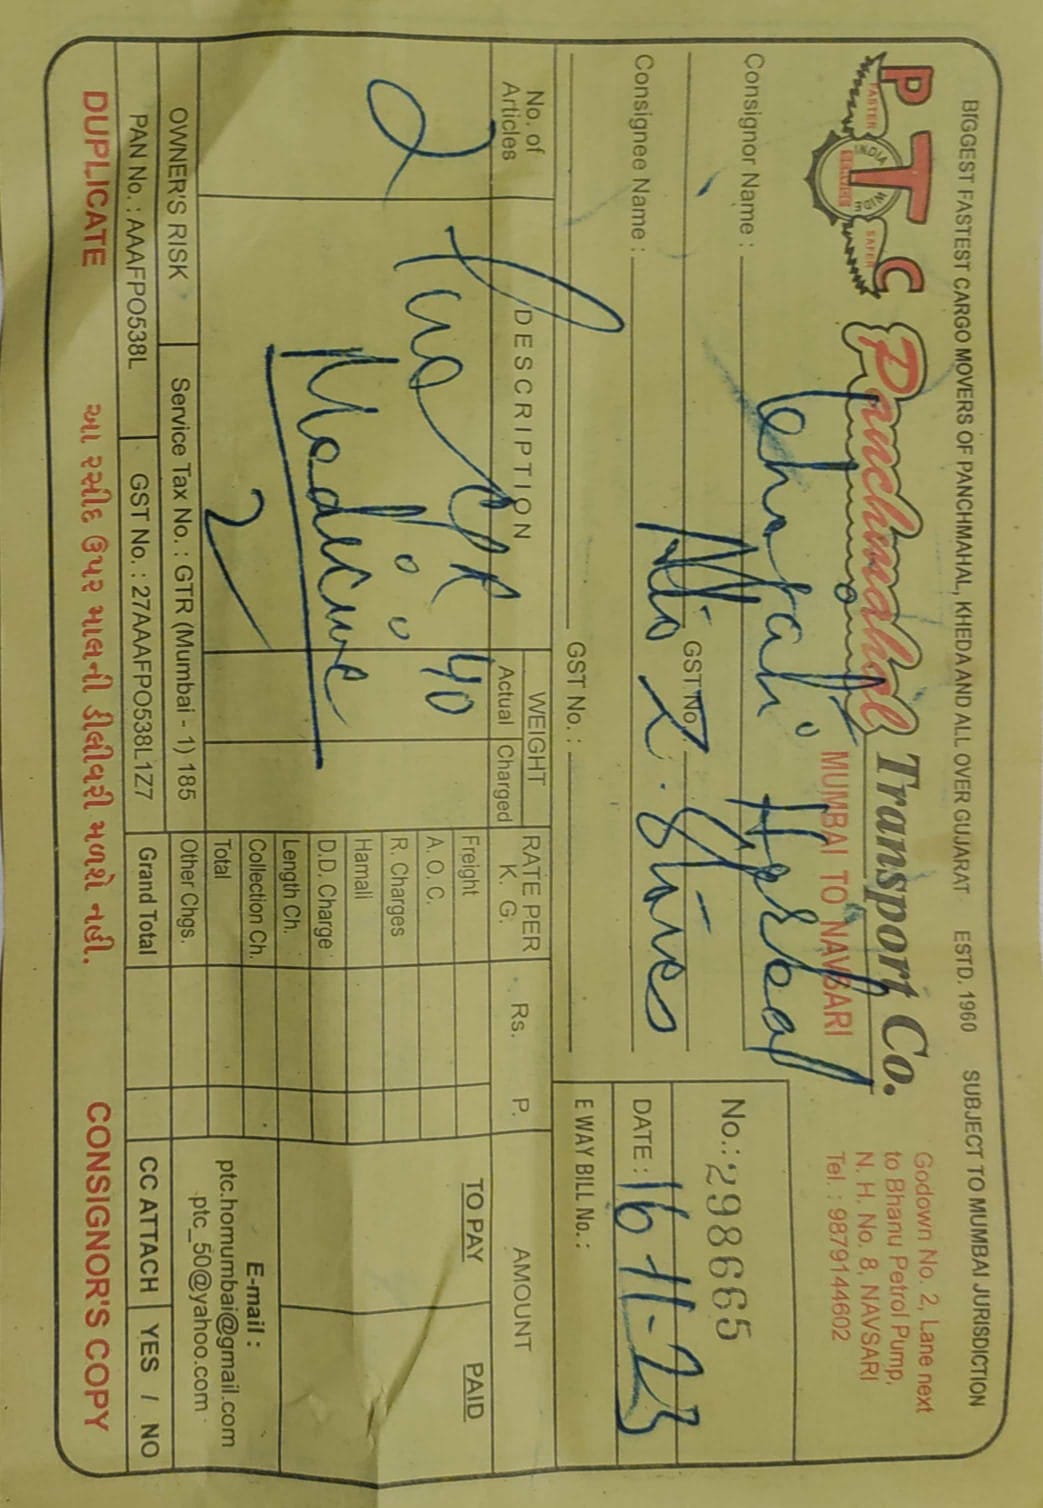 BIGGEST FASTEST CARGO MOVERS OF PANCHMAHAL, KHEDA AND ALL OVER GUJARAT ESTD. 1960 SUBJECT TO MUMBAI JURISDICTION
PTC
FASTER INDIA WIDE SERVICE SAFER
Panchmahal Transport Co.
MUMBAI TO NAVSARI
Godown No. 2, Lane next
to Bhanu Petrol Pump,
N. H. No. 8, NAVSARI
Tel. : 9879144602
Consignor Name :
Herbal
GST No.
No.: 298665
Consignee Name :
DATE : 16-11-23
GST No. :
E WAY BILL No. :
No. of Articles
DESCRIPTION
WEIGHT
Actual Charged
RATE PER K. G.
Rs. P.
AMOUNT
TO PAY PAID
2
Two
40
Medicine
2
Freight
A. O. C.
R. Charges
Hamali
D.D. Charge
Length Ch.
Collection Ch.
Total
Other Chgs.
Grand Total
E-mail :
ptc.homumbai@gmail.com
ptc_50@yahoo.com
OWNER'S RISK
Service Tax No. : GTR (Mumbai - 1) 185
PAN No. : AAAFPO538L
GST No. : 27AAAFPO538L1Z7
CC ATTACH YES / NO
DUPLICATE
આ રસીદ ઉપર માલની ડીલીવરી મળશે નહી.
CONSIGNOR'S COPY